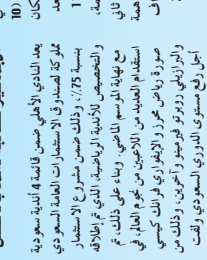 يعد النادي الأهلي ضمن قائمة 4 أندية سعودية
مملوكة لصندوق الاستثمارات العامة السعودي
بنسبة 75٪، وذلك ضمن مشروع الاستثمار
والتخصيص للأندية الرياضية، الذي تم إطلاقه
مع نهاية الموسم الماضي. وبناء على ذلك، تم
استقدام العديد من اللاعبين من نجوم العالم، في
صورة رياض محرز والإيفواري فرانك كيسي
والبرازيلي روبرتو فيرمينو وآخرين. وذلك من
أجل رفع مستوى الدوري السعودي ولفت
10)